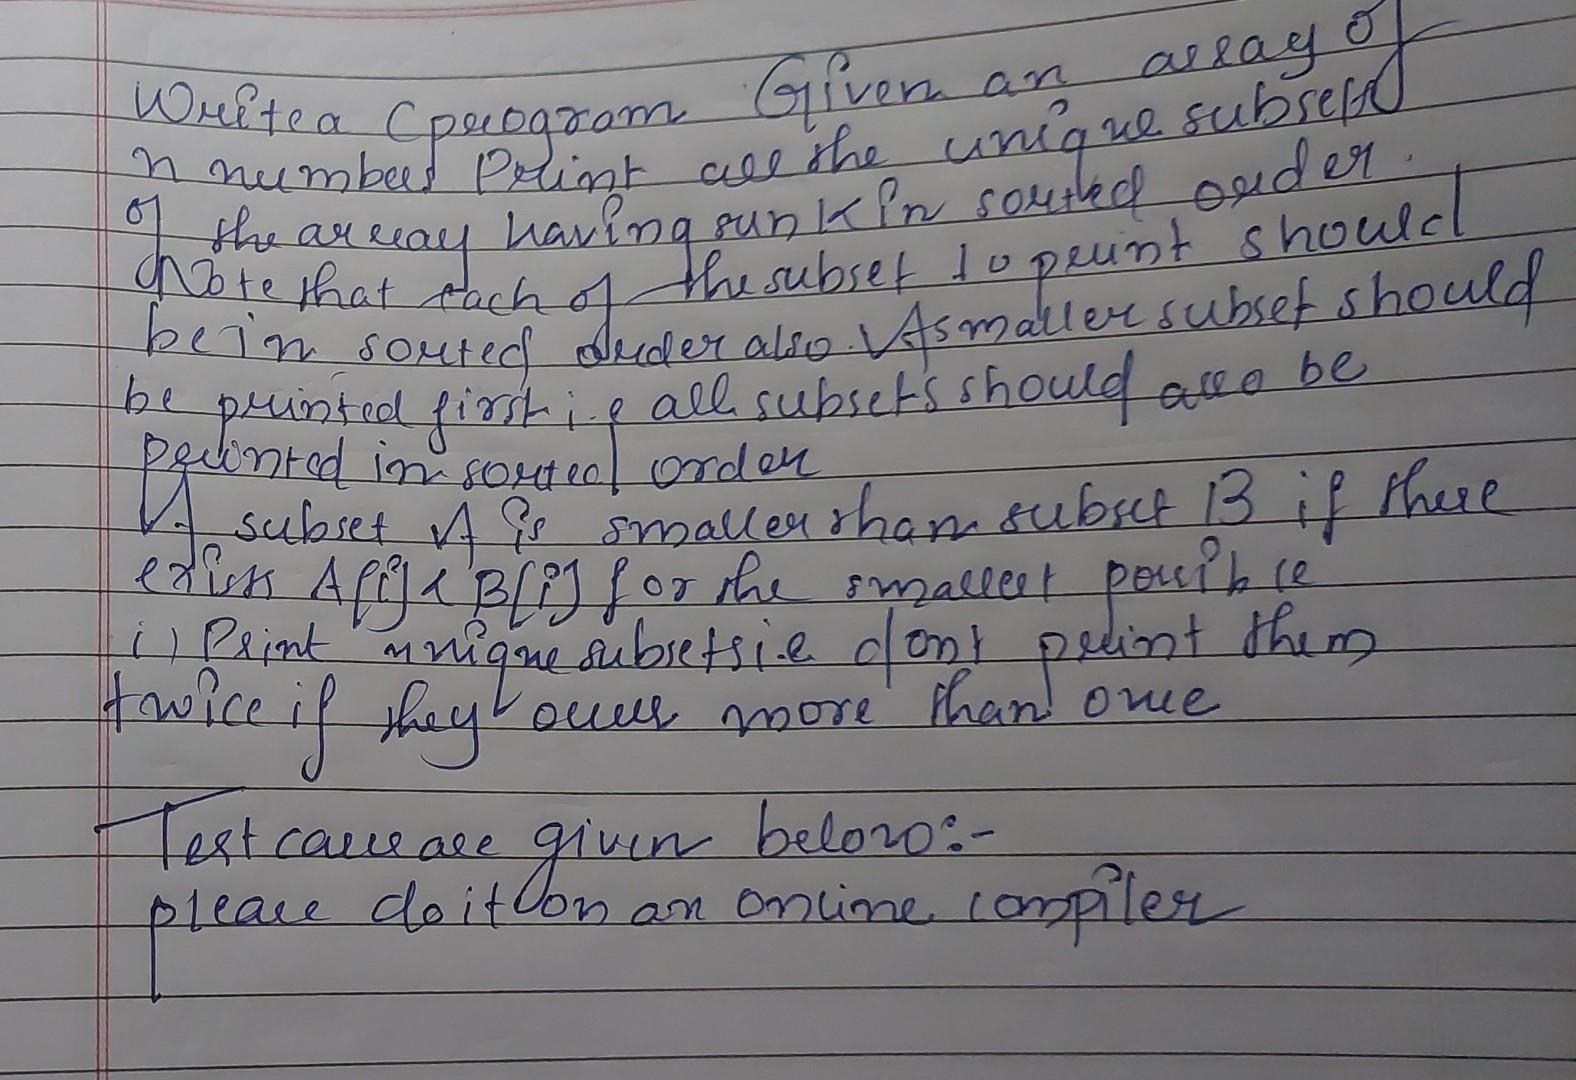 Write a C program Given an array of
n numbers Print all the unique subsets
of the array having sum K in sorted order.
Note that each of the subset to print should
be in sorted order also. A smaller subset should
be printed first i.e all subsets should also be
printed in sorted order
A subset A is smaller than subset B if there
exists A[i] < B[i] for the smallest possible
i) Print unique subsets i.e dont print them
twice if they occur more than once
Test cases are given below:-
please do it on an online compiler